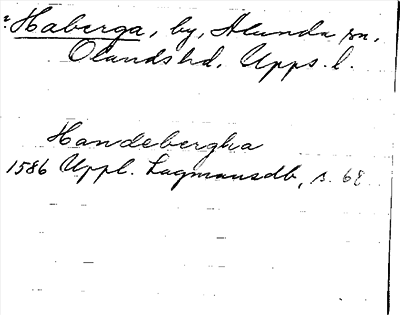 Haberga, by, Alunda sn,
Olands hd, Upps. l.
Handebergha
1586 Uppl. Lagmansdb, s. 68